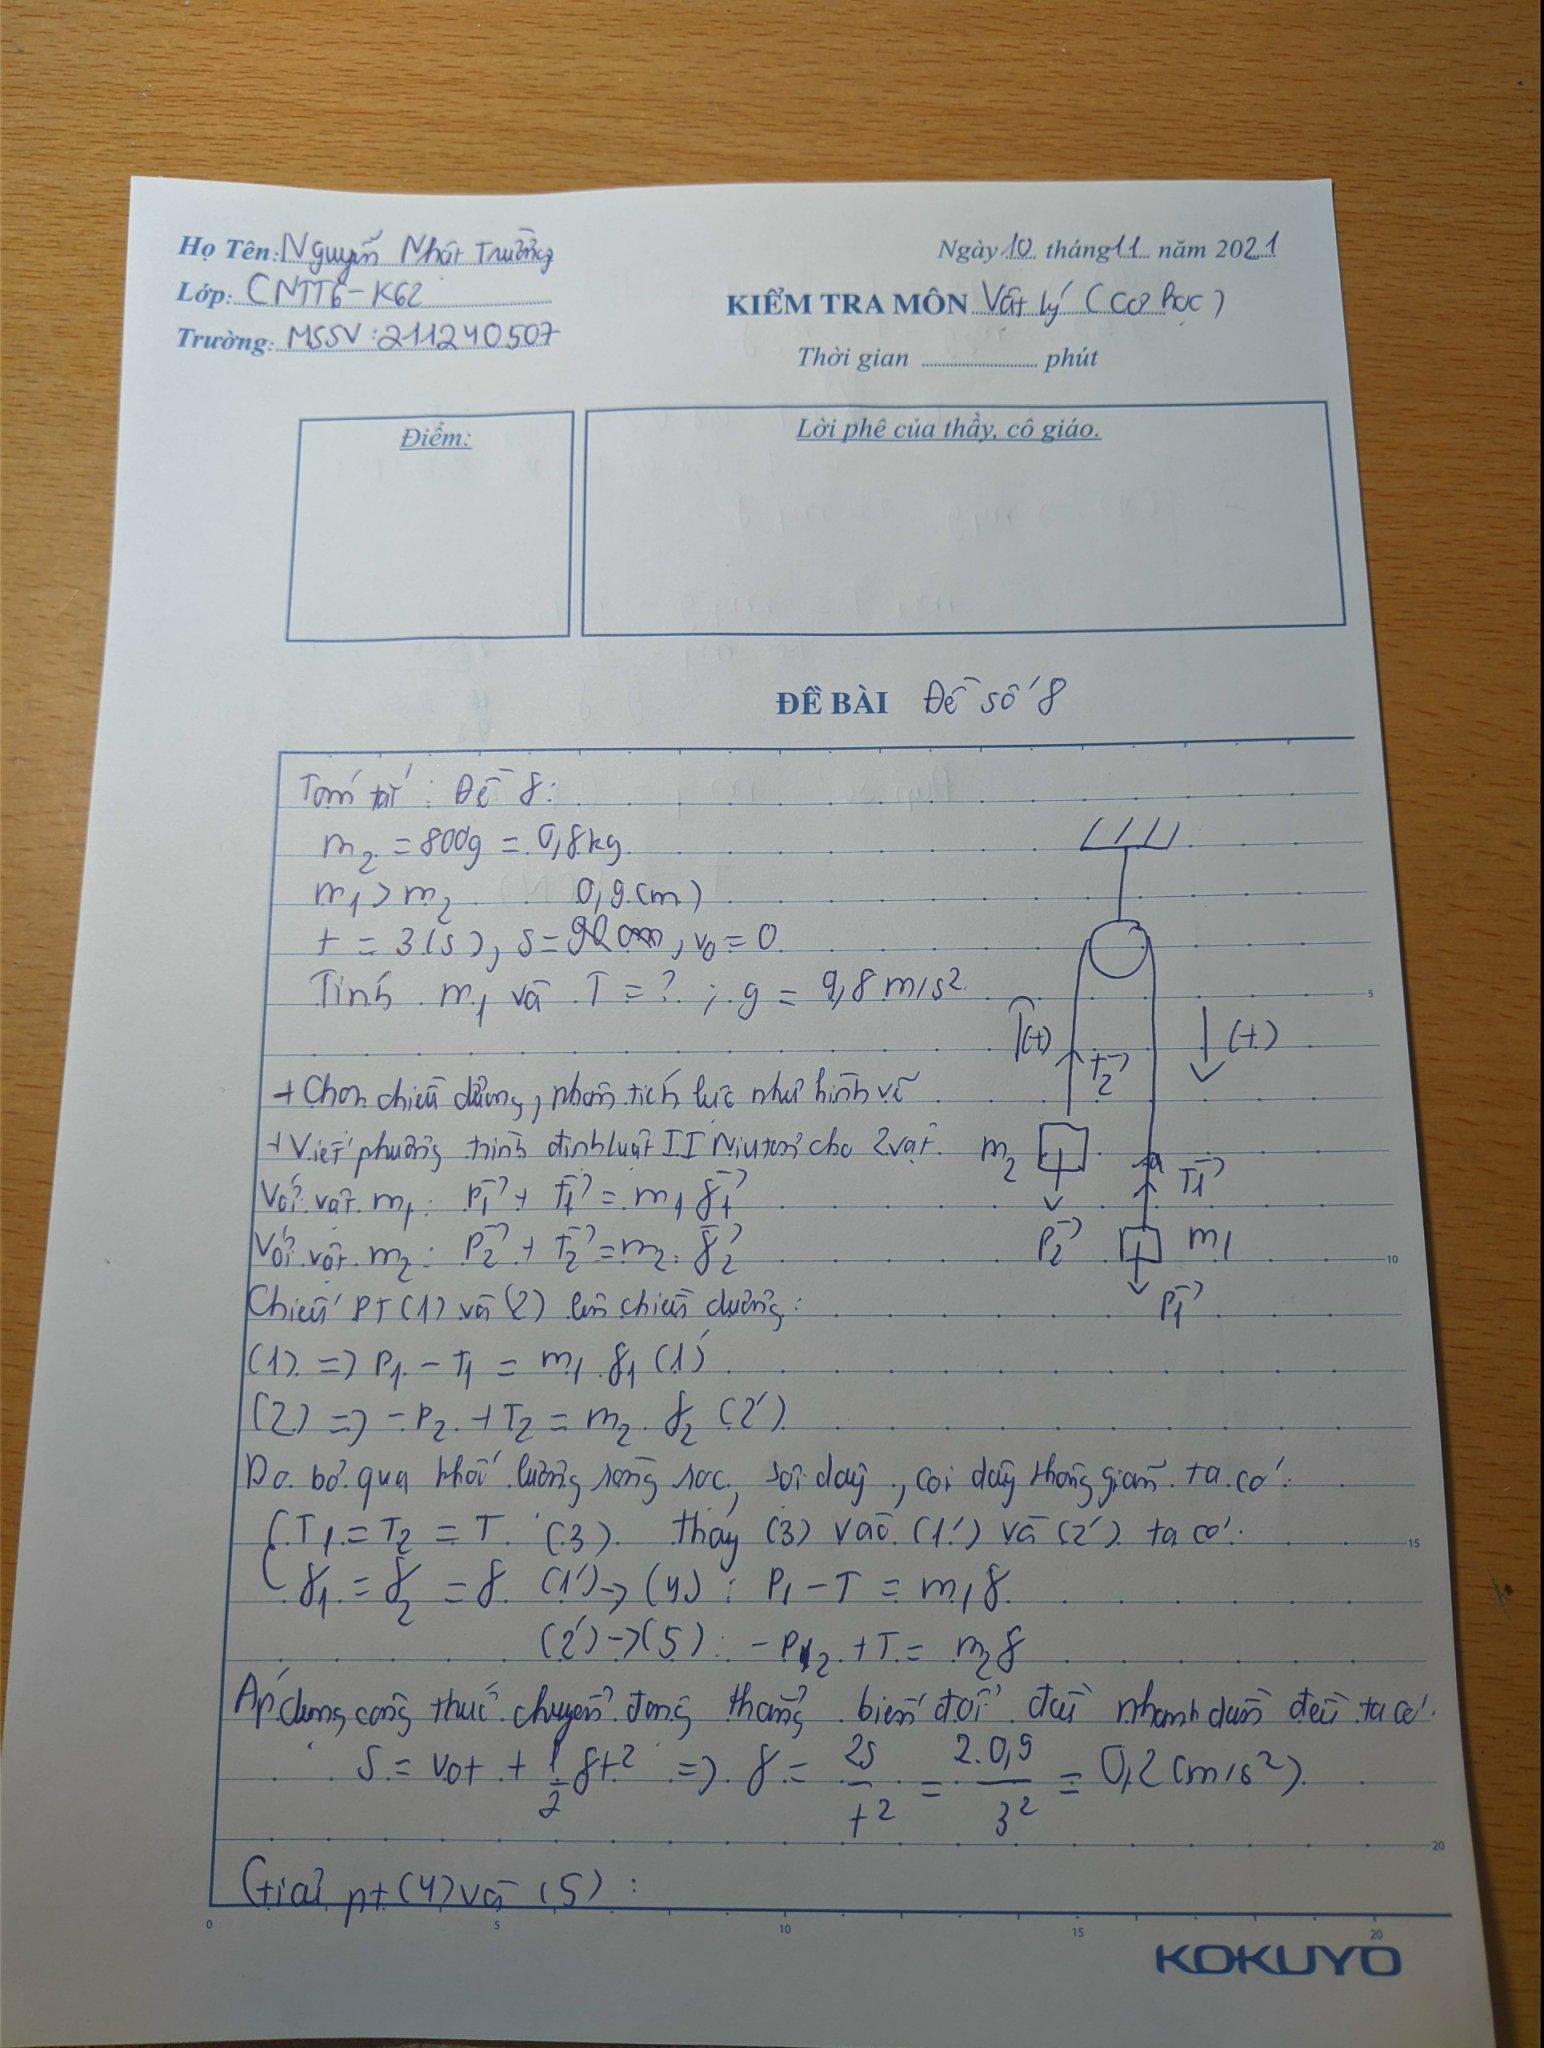 Họ Tên: Nguyễn Nhật Trường
Ngày 10 tháng 11 năm 2021
Lớp: CNTT6-K62
KIỂM TRA MÔN Vật lý (Cơ học)
Trường: MSSV: 211240507
Thời gian ........ phút
Điểm:
Lời phê của thầy, cô giáo.
ĐỀ BÀI Đề số 8
Tóm tắt: Đề 8:
m2 = 800g = 0,8kg
m1 > m2 0,9(m)
t = 3(s), s = 90 cm, v0 = 0
Tính m1 và T = ? ; g = 9,8 m/s²
(+) T2→ (+)
+ Chọn chiều dương, phân tích lực như hình vẽ
+ Viết phương trình định luật II Niutơn cho 2 vật
m2 T1→
Với vật m1: P1→ + T1→ = m1 γ1→
P2→ m1
Với vật m2: P2→ + T2→ = m2. γ2→
P1→
Chiếu PT (1) và (2) lên chiều dương:
(1) => P1 - T1 = m1 γ1 (1')
(2) => -P2 + T2 = m2 γ2 (2')
Do bỏ qua khối lượng ròng rọc, sợi dây, coi dây không giãn ta có:
{ T1 = T2 = T (3) thay (3) vào (1') và (2') ta có:
γ1 = γ2 = γ (1') -> (4) : P1 - T = m1γ
(2') -> (5): -P2 + T = m2γ
Áp dụng công thức chuyển động thẳng biến đổi đều nhanh dần đều ta có:
S = v0t + 1/2 γt² => γ = 2s/t² = 2.0,9/3² = 0,2 (m/s²)
Giải pt (4) và (5) :
5
10
15
20
0 5 10 15 20
KOKUYO